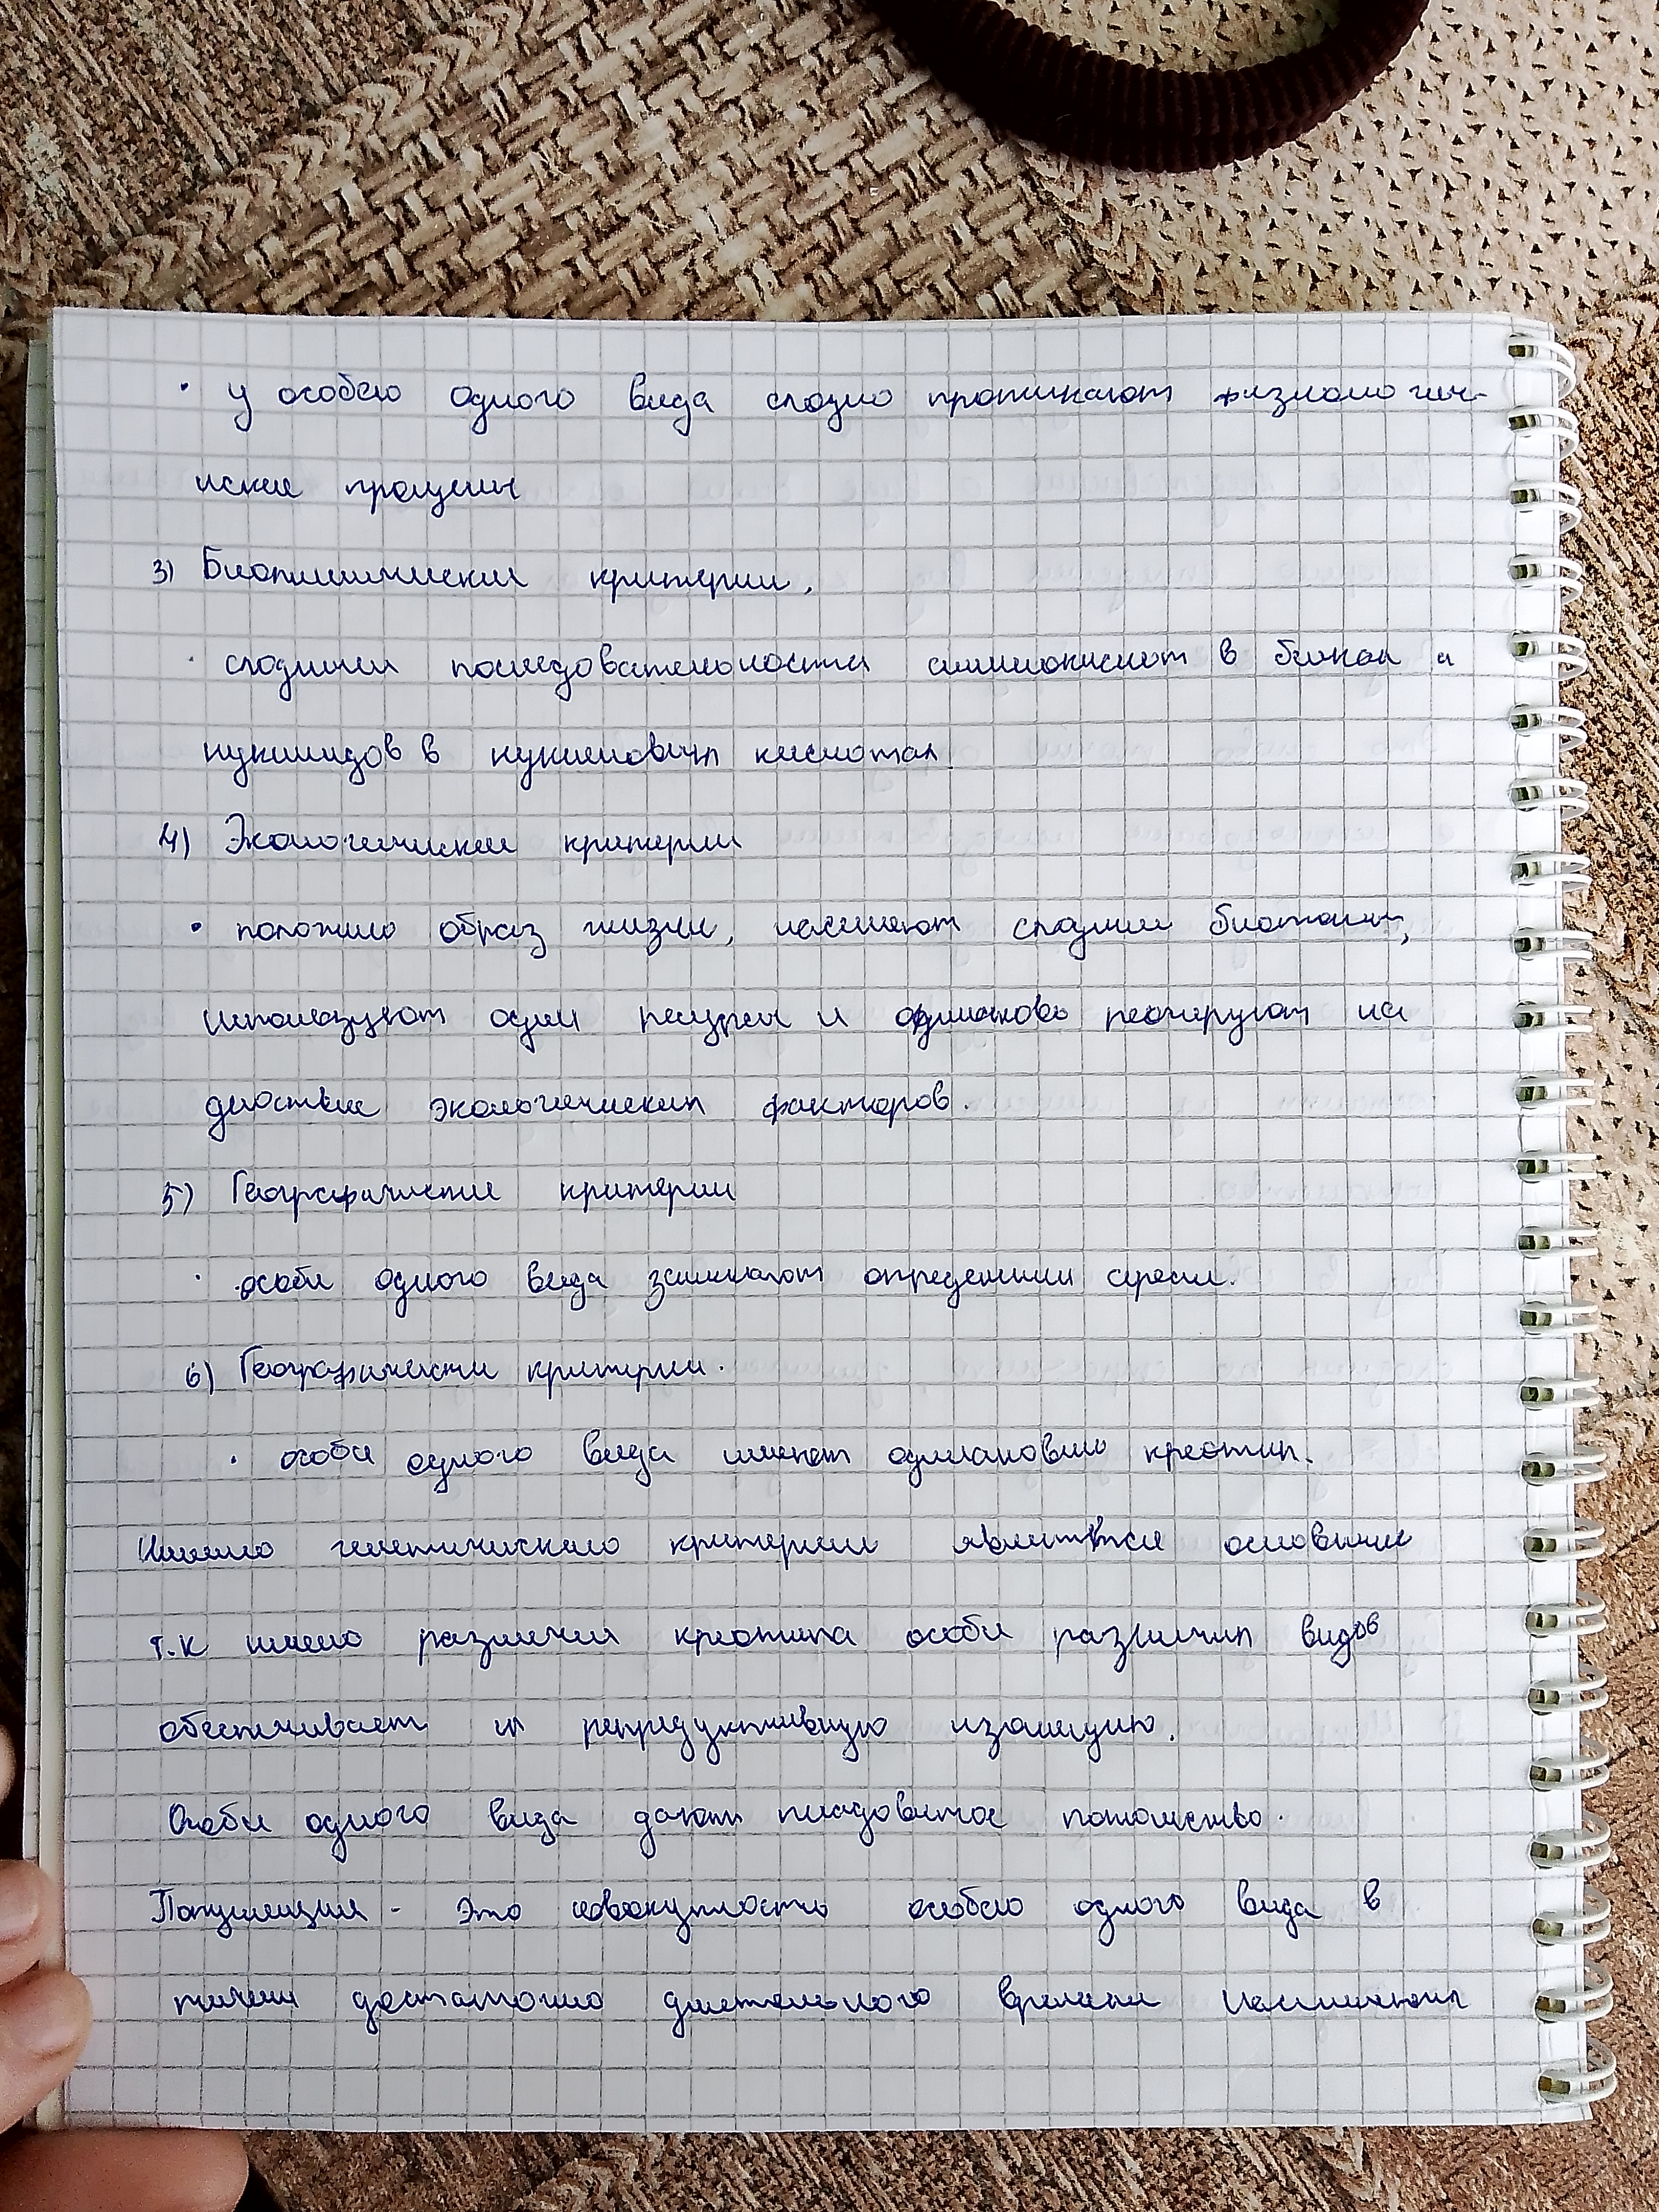 · у особею одного вида сходно протикают физиологич-
иские процессы
3) Биохимические критерии.
· сходния последовательности аминокислот в белках и
нуклиидов в нуклеиновых кислотах.
4) Экологические критерии
· положие образ жизни, населяют сходние биотопы,
используют одни ресурсы и одинаково реогируют на
действие экологических факторов.
5) Географически критерии
· особи одного вида занимают определенни ареал.
6) Географически критерии.
· особи одного вида имеют одинаковый креотип.
Именно генетическио критерии является основным
т.к имено различия креотипа особи различих видов
обеспечивает их репредуктивную изоляцию.
Особи одного вида дают плодовитое потомство.
Популяция - это совокупность особею одного вида в
течении достаточно длительного времени населяющих